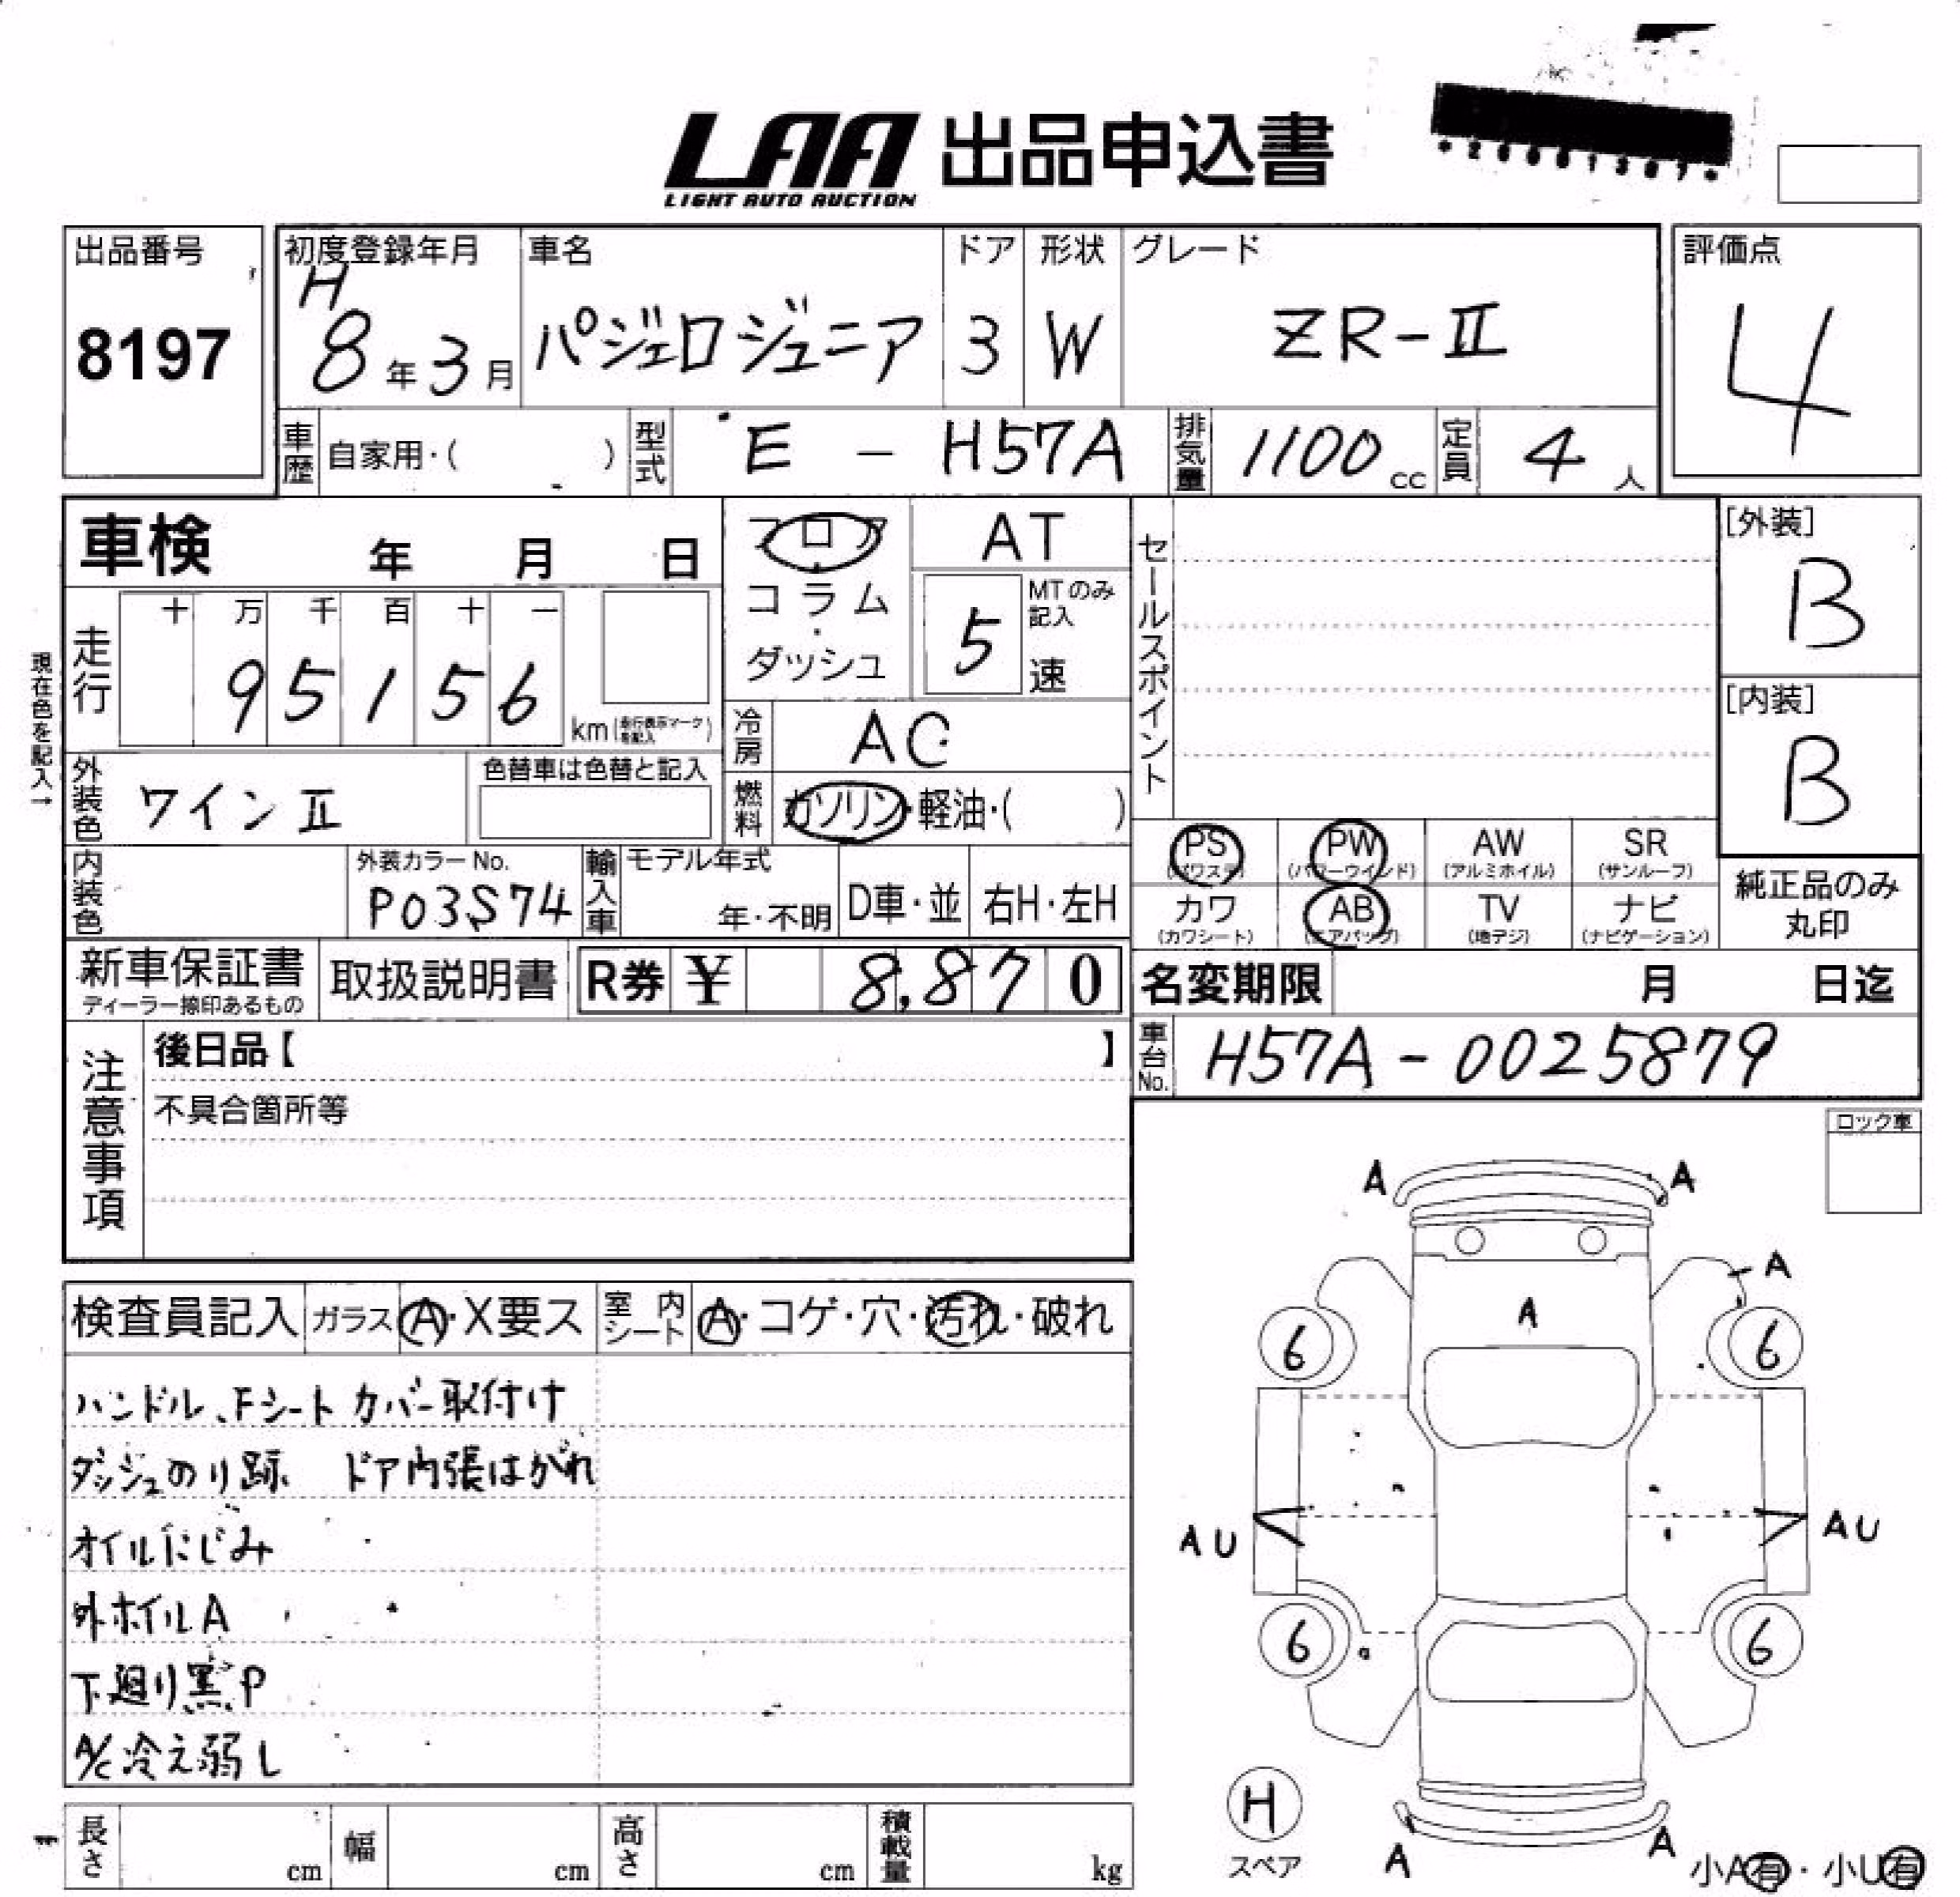 LAA 出品申込書
LIGHT AUTO AUCTION
出品番号
8197
初度登録年月
H
8年3月
車名
パジェロジュニア
ドア
3
形状
W
グレード
ZR-II
評価点
4
車歴 自家用・( )
型式 E - H57A
排気量 1100 cc
定員 4 人
車検 年 月 日
フロア・コラム・ダッシュ
AT
5 速
MTのみ記入
セールスポイント
[外装]
B
[内装]
B
現在色を記入→
走行
十 万 千 百 十 一
9 5 1 5 6
km
冷房 AC
燃料 ガソリン・軽油・( )
外装色 ワインII
色替車は色替と記入
内装色
外装カラーNo.
P03S74
輸入車 モデル年式
年・不明
D車・並
右H・左H
PS
(パワステ)
PW
(パワーウインド)
AW
(アルミホイル)
SR
(サンルーフ)
カワ
(カワシート)
AB
(エアバッグ)
TV
(地デジ)
ナビ
(ナビゲーション)
純正品のみ
丸印
新車保証書
ディーラー捺印あるもの
取扱説明書
R券 ¥ 8,870
名変期限 月 日迄
車台No. H57A-0025879
注意事項
後日品【 】
不具合箇所等
ロック車
検査員記入 ガラス A・X要ス 室内シート A・コゲ・穴・汚れ・破れ
ハンドル、Fシートカバー取付け
ダッシュのり跡 ドア内張はがれ
オイルにじみ
外ホイルA
下廻り黒P
A/C冷え弱し
A A
A
A
6 6
AU AU
6 6
H
スペア
A A
小A有・小U有
長さ cm
幅 cm
高さ cm
積載量 kg